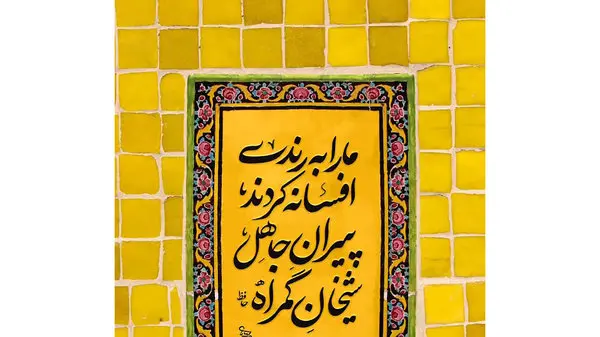 ما را به رندے
افسانه کردند
پیرانِ جاهِل
شیخانِ گمراه
حافظ